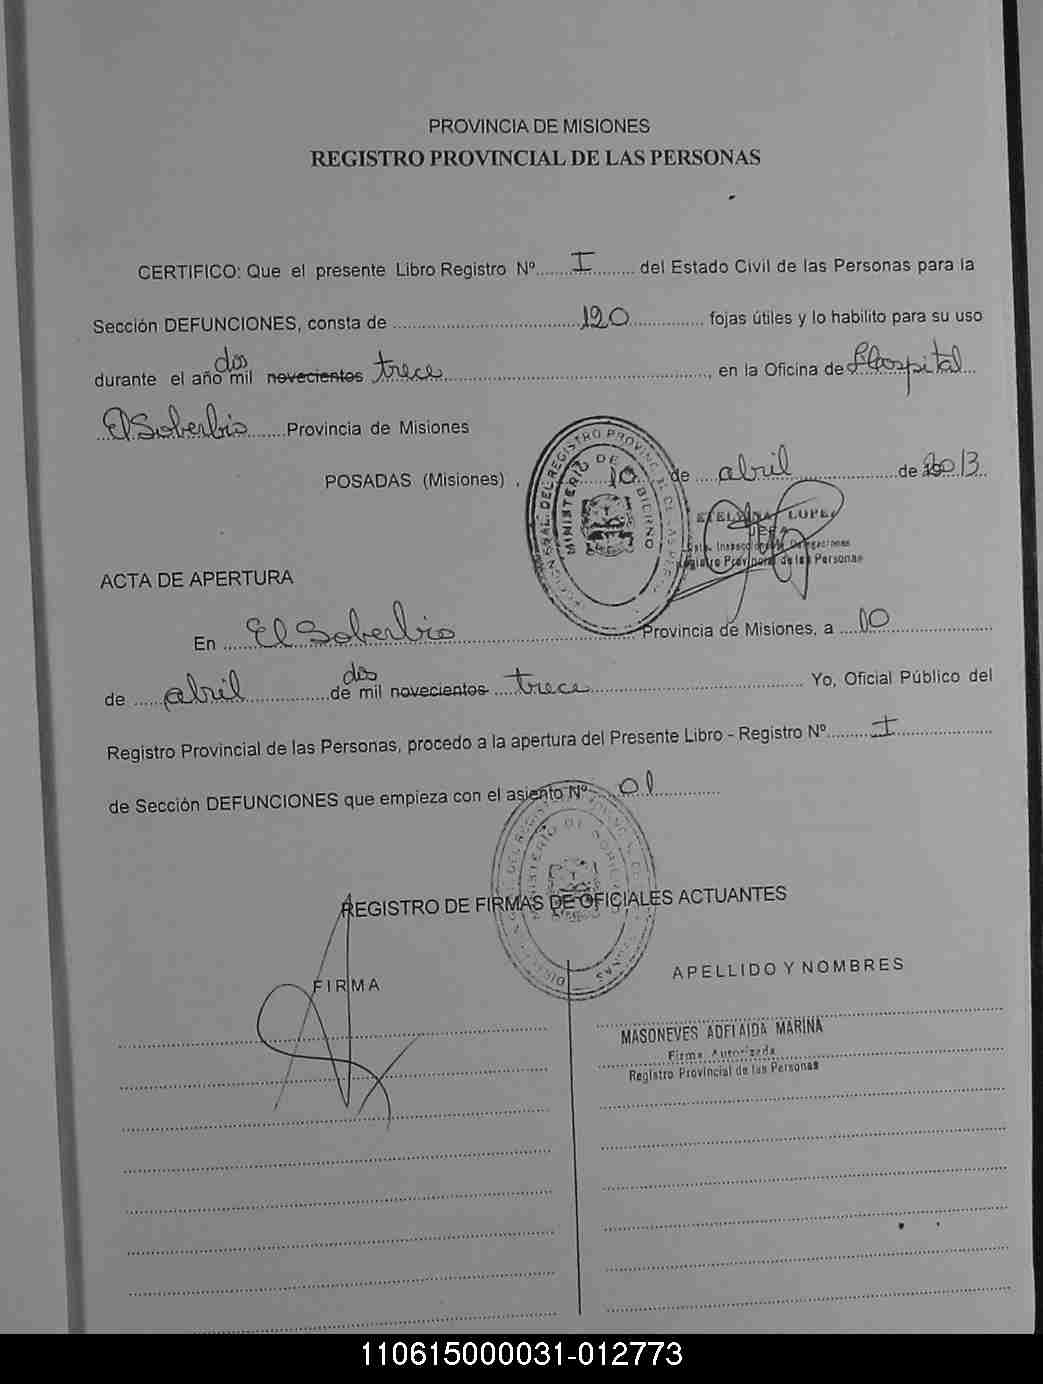 PROVINCIA DE MISIONES
REGISTRO PROVINCIAL DE LAS PERSONAS
CERTIFICO: Que el presente Libro Registro Nº......I......... del Estado Civil de las Personas para la
Sección DEFUNCIONES, consta de ........................120................ fojas útiles y lo habilito para su uso
dos
durante el año mil novecientos trece........................................., en la Oficina de Hospital...
...El Soberbio........Provincia de Misiones
POSADAS (Misiones) , ....10....de ....abril.....................de 19 2013...
DEL REGISTRO PROVINCIAL DE LAS
MINISTERIO DE GOBIERNO
LOPEZ
JEFA
Registro Provincial de las Personas
ACTA DE APERTURA
En .....El Soberbio..............................Provincia de Misiones, a ....10...................
dos
de .....abril...............de mil novecientos ...trece............................... Yo, Oficial Público del
Registro Provincial de las Personas, procedo a la apertura del Presente Libro - Registro Nº.........I.................
de Sección DEFUNCIONES que empieza con el asiento Nº.....01..............
MINISTERIO DE GOBIERNO
REGISTRO DE FIRMAS DE OFICIALES ACTUANTES
FIRMA
APELLIDO Y NOMBRES
MASONEVES ADELAIDA MARINA
Firma Autorizada
Registro Provincial de las Personas
110615000031-012773